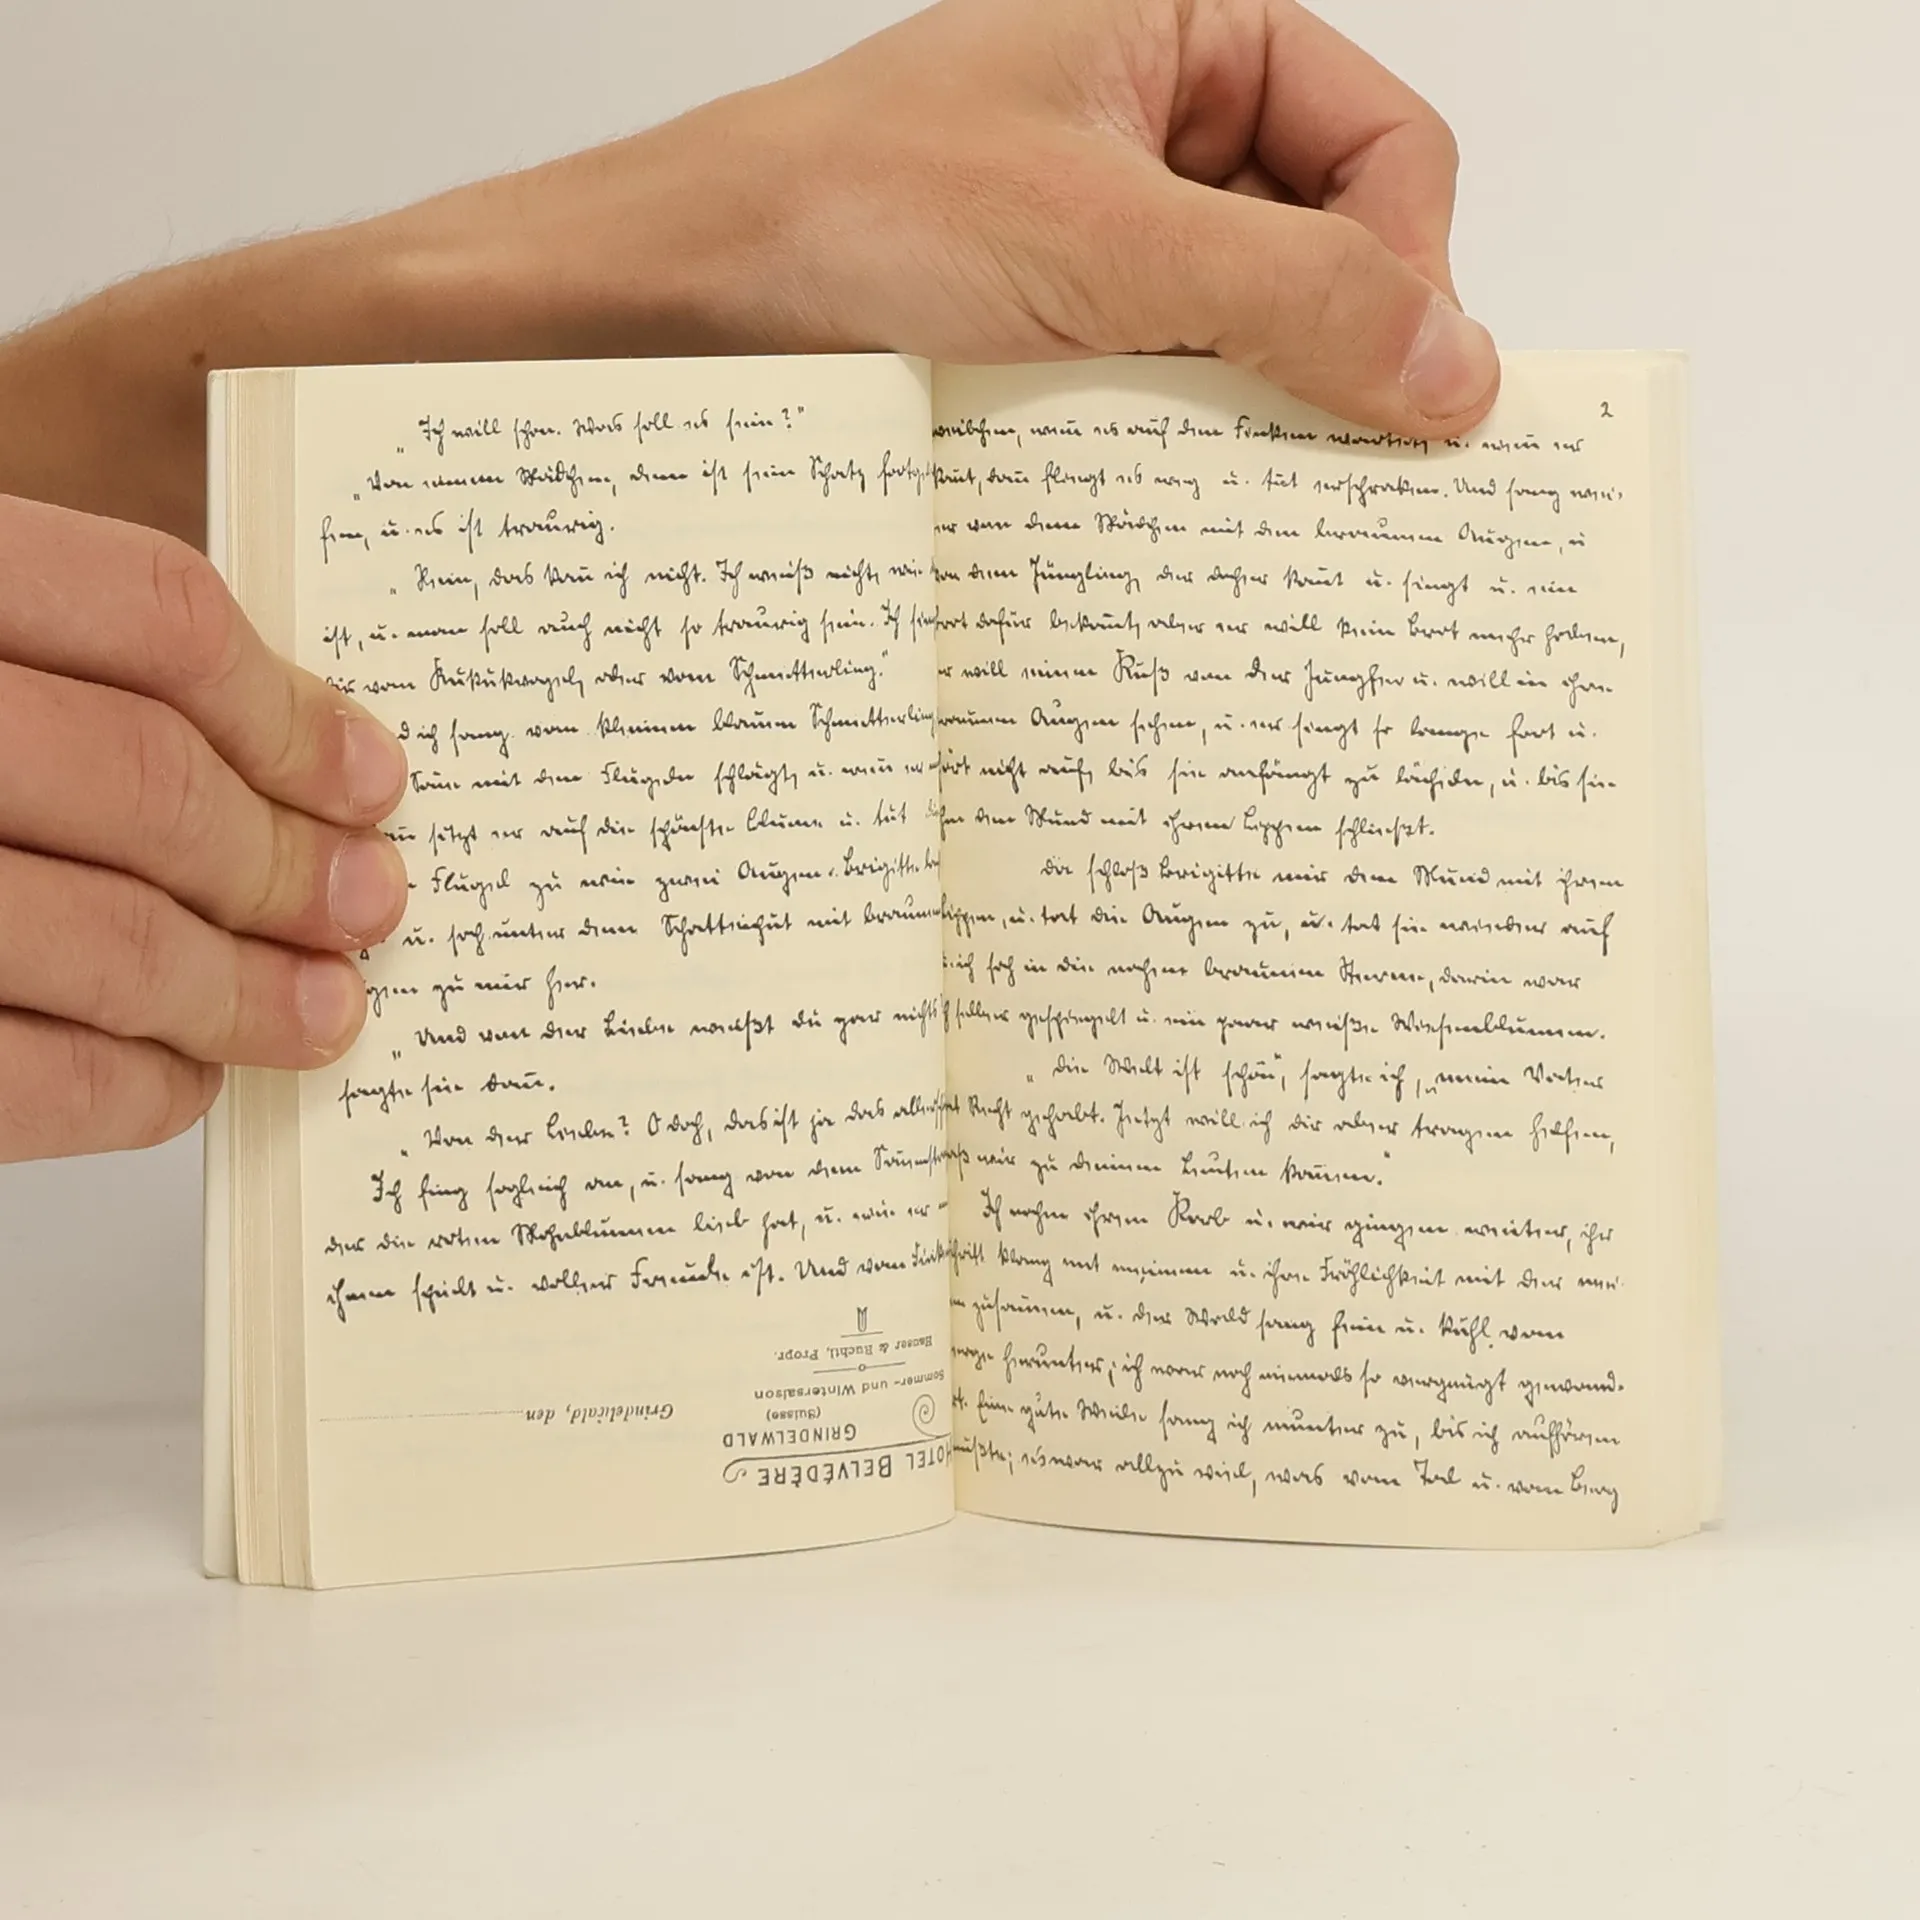 „Ich will schon. Was soll es sein?"
„Von einem Mädchen, dem ist sein Schatz
fen, u. es ist traurig.
„Nein, das kañ ich nicht. Ich weiß nicht, wie
ist, u. man soll auch nicht so traurig sein. Ich
vom Kukukvogel, oder vom Schmetterling."
ich sang vom kleinen blauen Schmetterling
mit den Flügeln schlägt, u. weñ er
sitzt er auf die schönste Blume u. tut
Flügel zu wie zwei Augen. Brigitte
u. sah unter dem Schattenhut mit braunen
gen zu mir her.
„Und von der Liebe weißt du gar nichts
sagte sie dañ.
„Von der Liebe? O doch, das ist ja das
Ich fing sogleich an, u. sang von dem
der die roten Mohnblumen lieb hat, u. wie er
ihnen spielt u. voller Freude ist. Und vom
Hauser & Ruchti, Propr.
Sommer- und Wintersaison
(Suisse)
GRINDELWALD
HOTEL BELVÉDÈRE
Grindelwald, den
2
weibchen, weñ es auf den Finken wartet, u. weñ er
kom̃t, dañ fliegt es weg u. tut erschrocken. Und sang wei-
er von dem Mädchen mit den braunen Augen, u
von dem Jüngling, der daher kom̃t u. singt u. ein
Brot dafür bekom̃t, aber er will kein Brot mehr haben,
er will einen Kuß von der Jungfer u. will in ihre
braunen Augen sehen, u. er singt so lange fort u.
hört nicht auf, bis sie anfängt zu lächeln, u. bis sie
ihm den Mund mit ihren Lippen schliesst.
Da schloß Brigitte mir den Mund mit ihren
Lippen, u. tat die Augen zu, u. tat sie wieder auf
u. ich sah in die nahen braunen Sterne, darin war
ich selber gespiegelt u. ein paar weiße Wiesenblumen.
„Die Welt ist schön", sagte ich, „mein Vater
hat Recht gehabt. Jetzt will ich dir aber tragen helfen,
daß wir zu deinen Leuten kom̃en."
Ich nahm ihren Korb u. wir gingen weiter, ihr
Schritt klang mit meinem u. ihre Fröhlichkeit mit der mei-
nen zusam̃en, u. der Wald sang fein u. kühl vom
Berge herunter; ich war noch niemals so vergnügt gewand-
ert. Eine gute Weile sang ich munter zu, bis ich aufhören
mußte; es war allzu viel, was vom Tal u. vom Berg